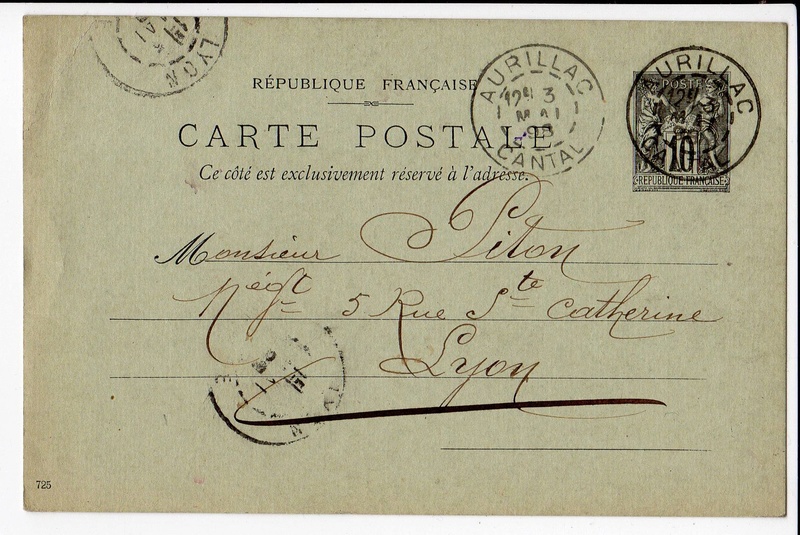 LYON
MAI
RÉPUBLIQUE FRANÇAISE
AURILLAC
3
MAI
CANTAL
AURILLAC
3
CANTAL
POSTE
10
RÉPUBLIQUE FRANÇAISE
CARTE POSTALE
Ce côté est exclusivement réservé à l'adresse.
Monsieur Piton
Négt 5 Rue Ste Catherine
Lyon
725